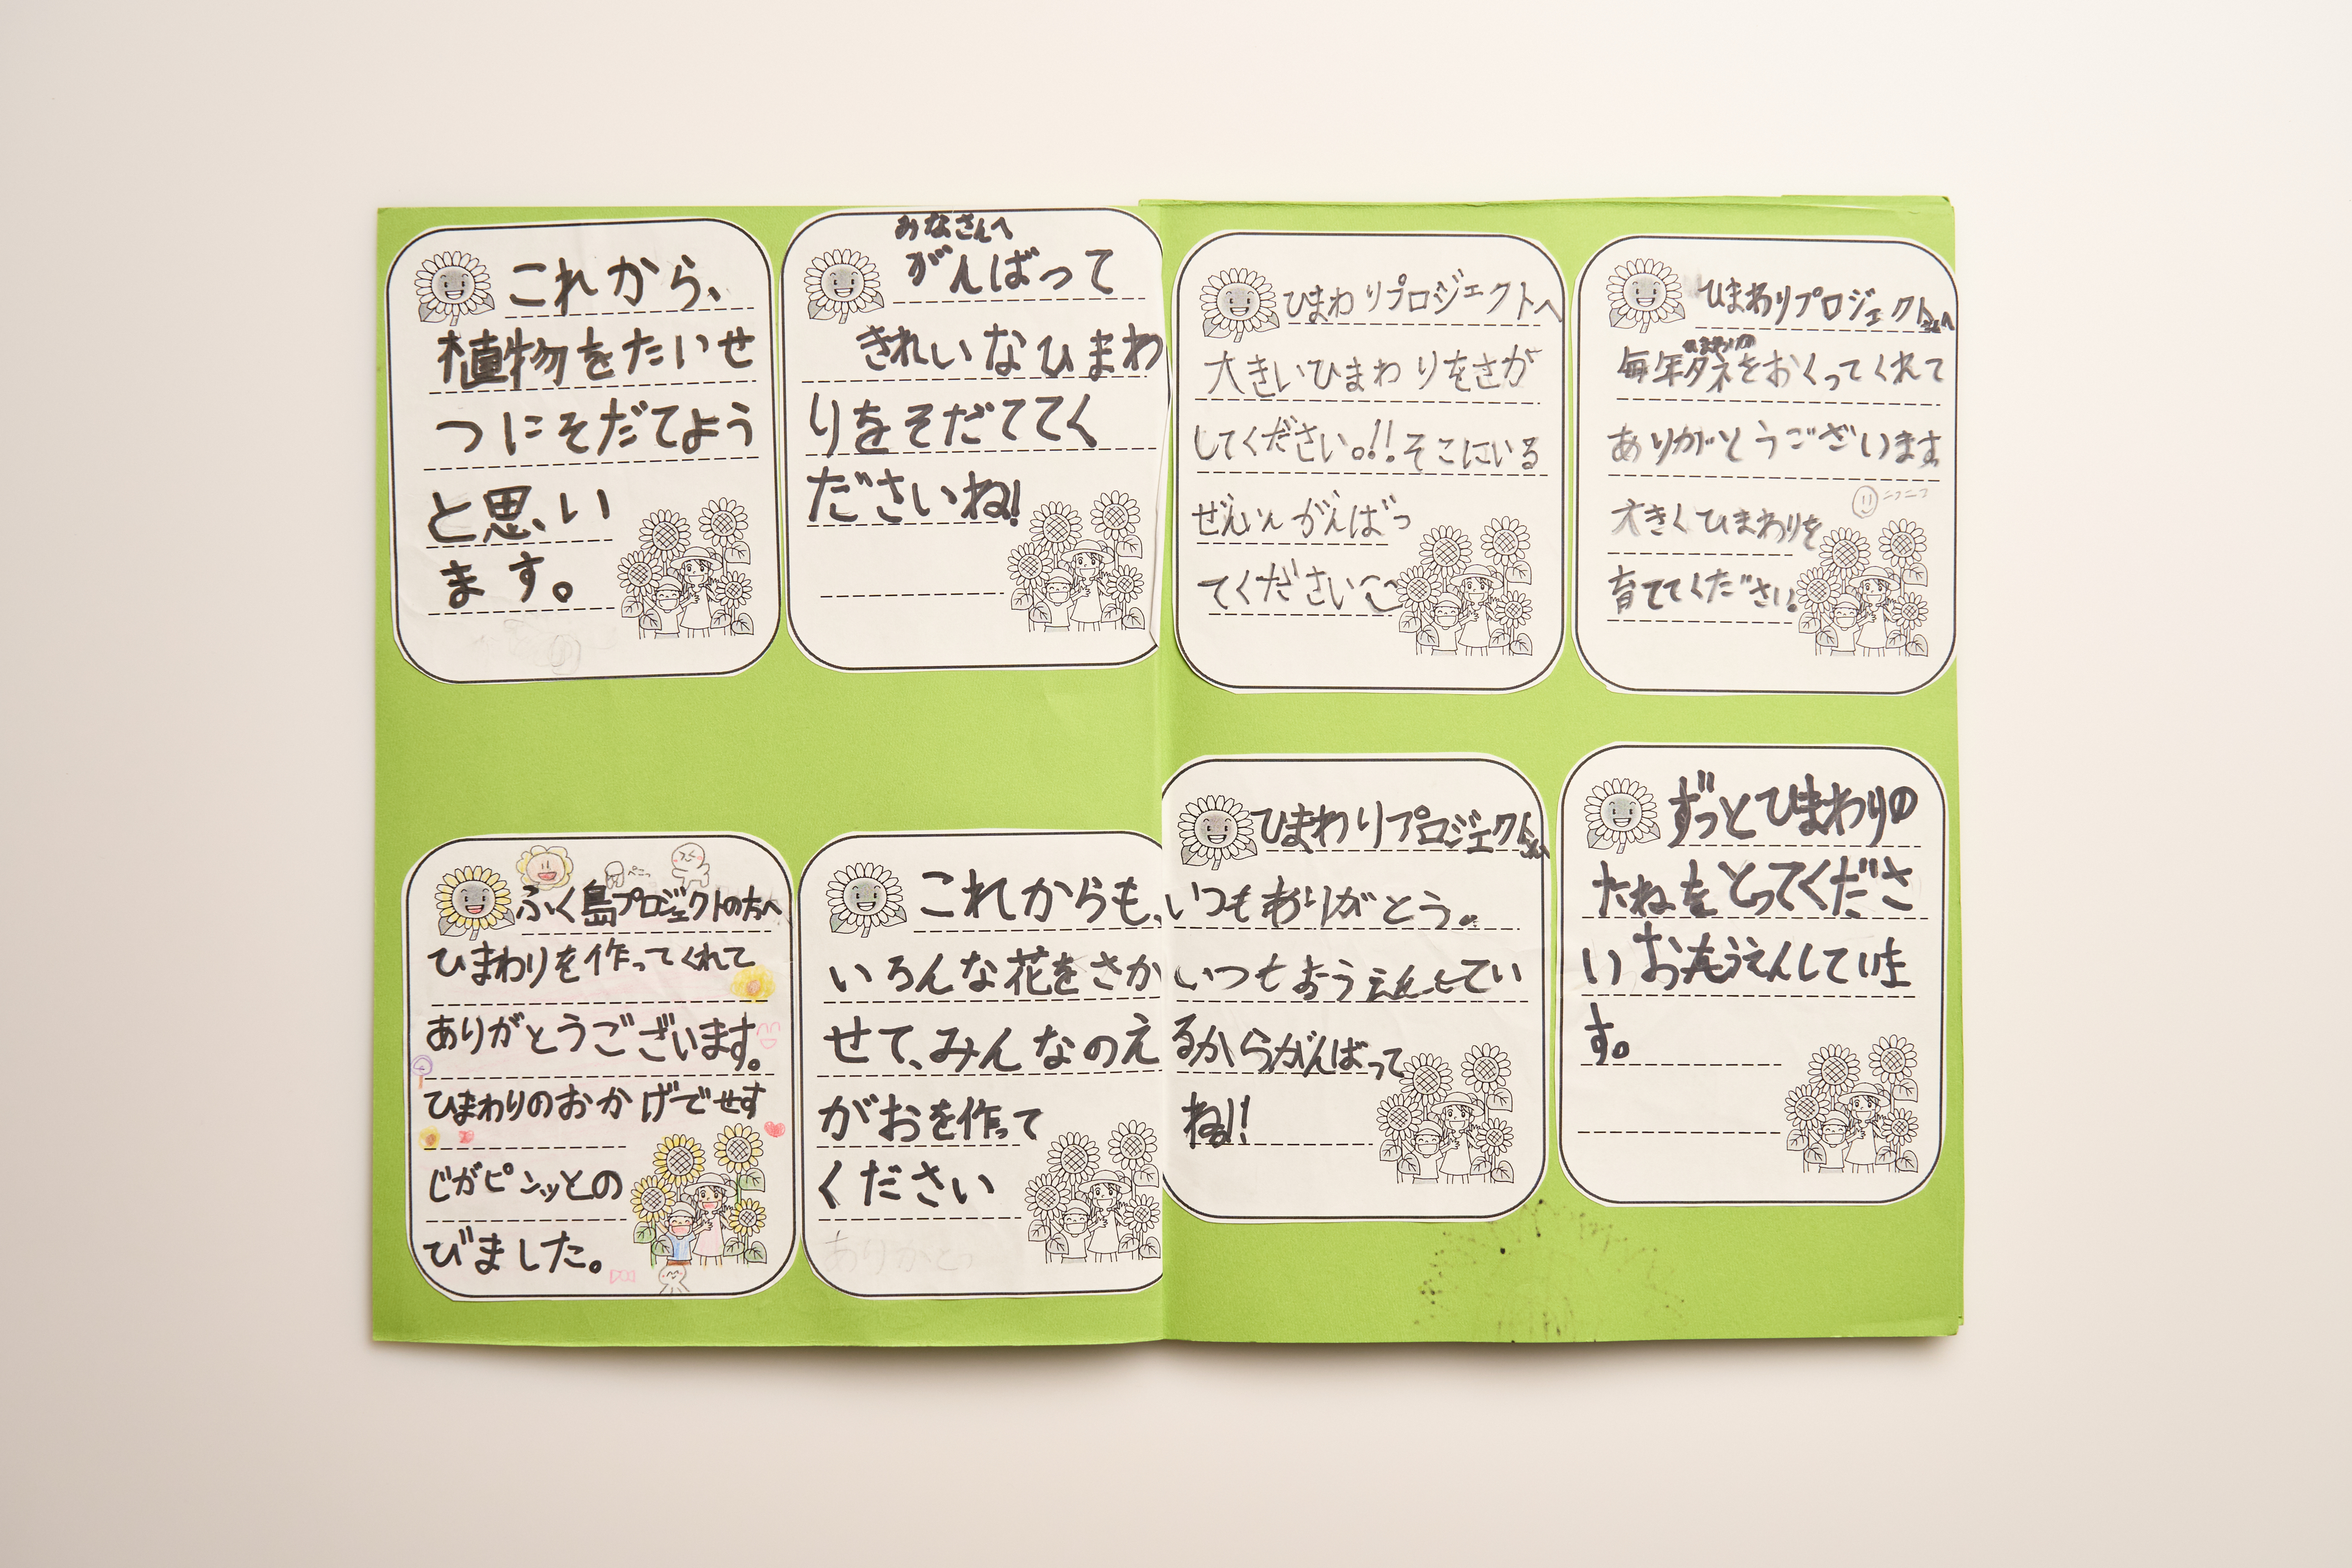 これから、
植物をたいせ
つにそだてよう
と思い
ます。
みなさんへ
がんばって
きれいなひまわ
りをそだててく
ださいね!
ひまわりプロジェクトへ
大きいひまわりをさが
してください。!!そこにいる
ぜんいんがんばっ
てください
ひまわりプロジェクトさんへ
ひまわりの
毎年タネをおくってくれて
ありがとうございます
ニコニコ
大きくひまわりを
育ててください。
ぺこっ
ふく島プロジェクトの方へ
ひまわりを作ってくれて
ありがとうございます。
ひまわりのおかげでせす
じがピンッとの
びました。
これからも、
いろんな花をさか
せて、みんなのえ
がおを作って
ください
ひまわりプロジェクトさんへ
いつもありがとう。
いつもおうえんしてい
るからがんばって
ね!!
ずっとひまわりの
たねをとってくださ
い おうえんしていま
す。